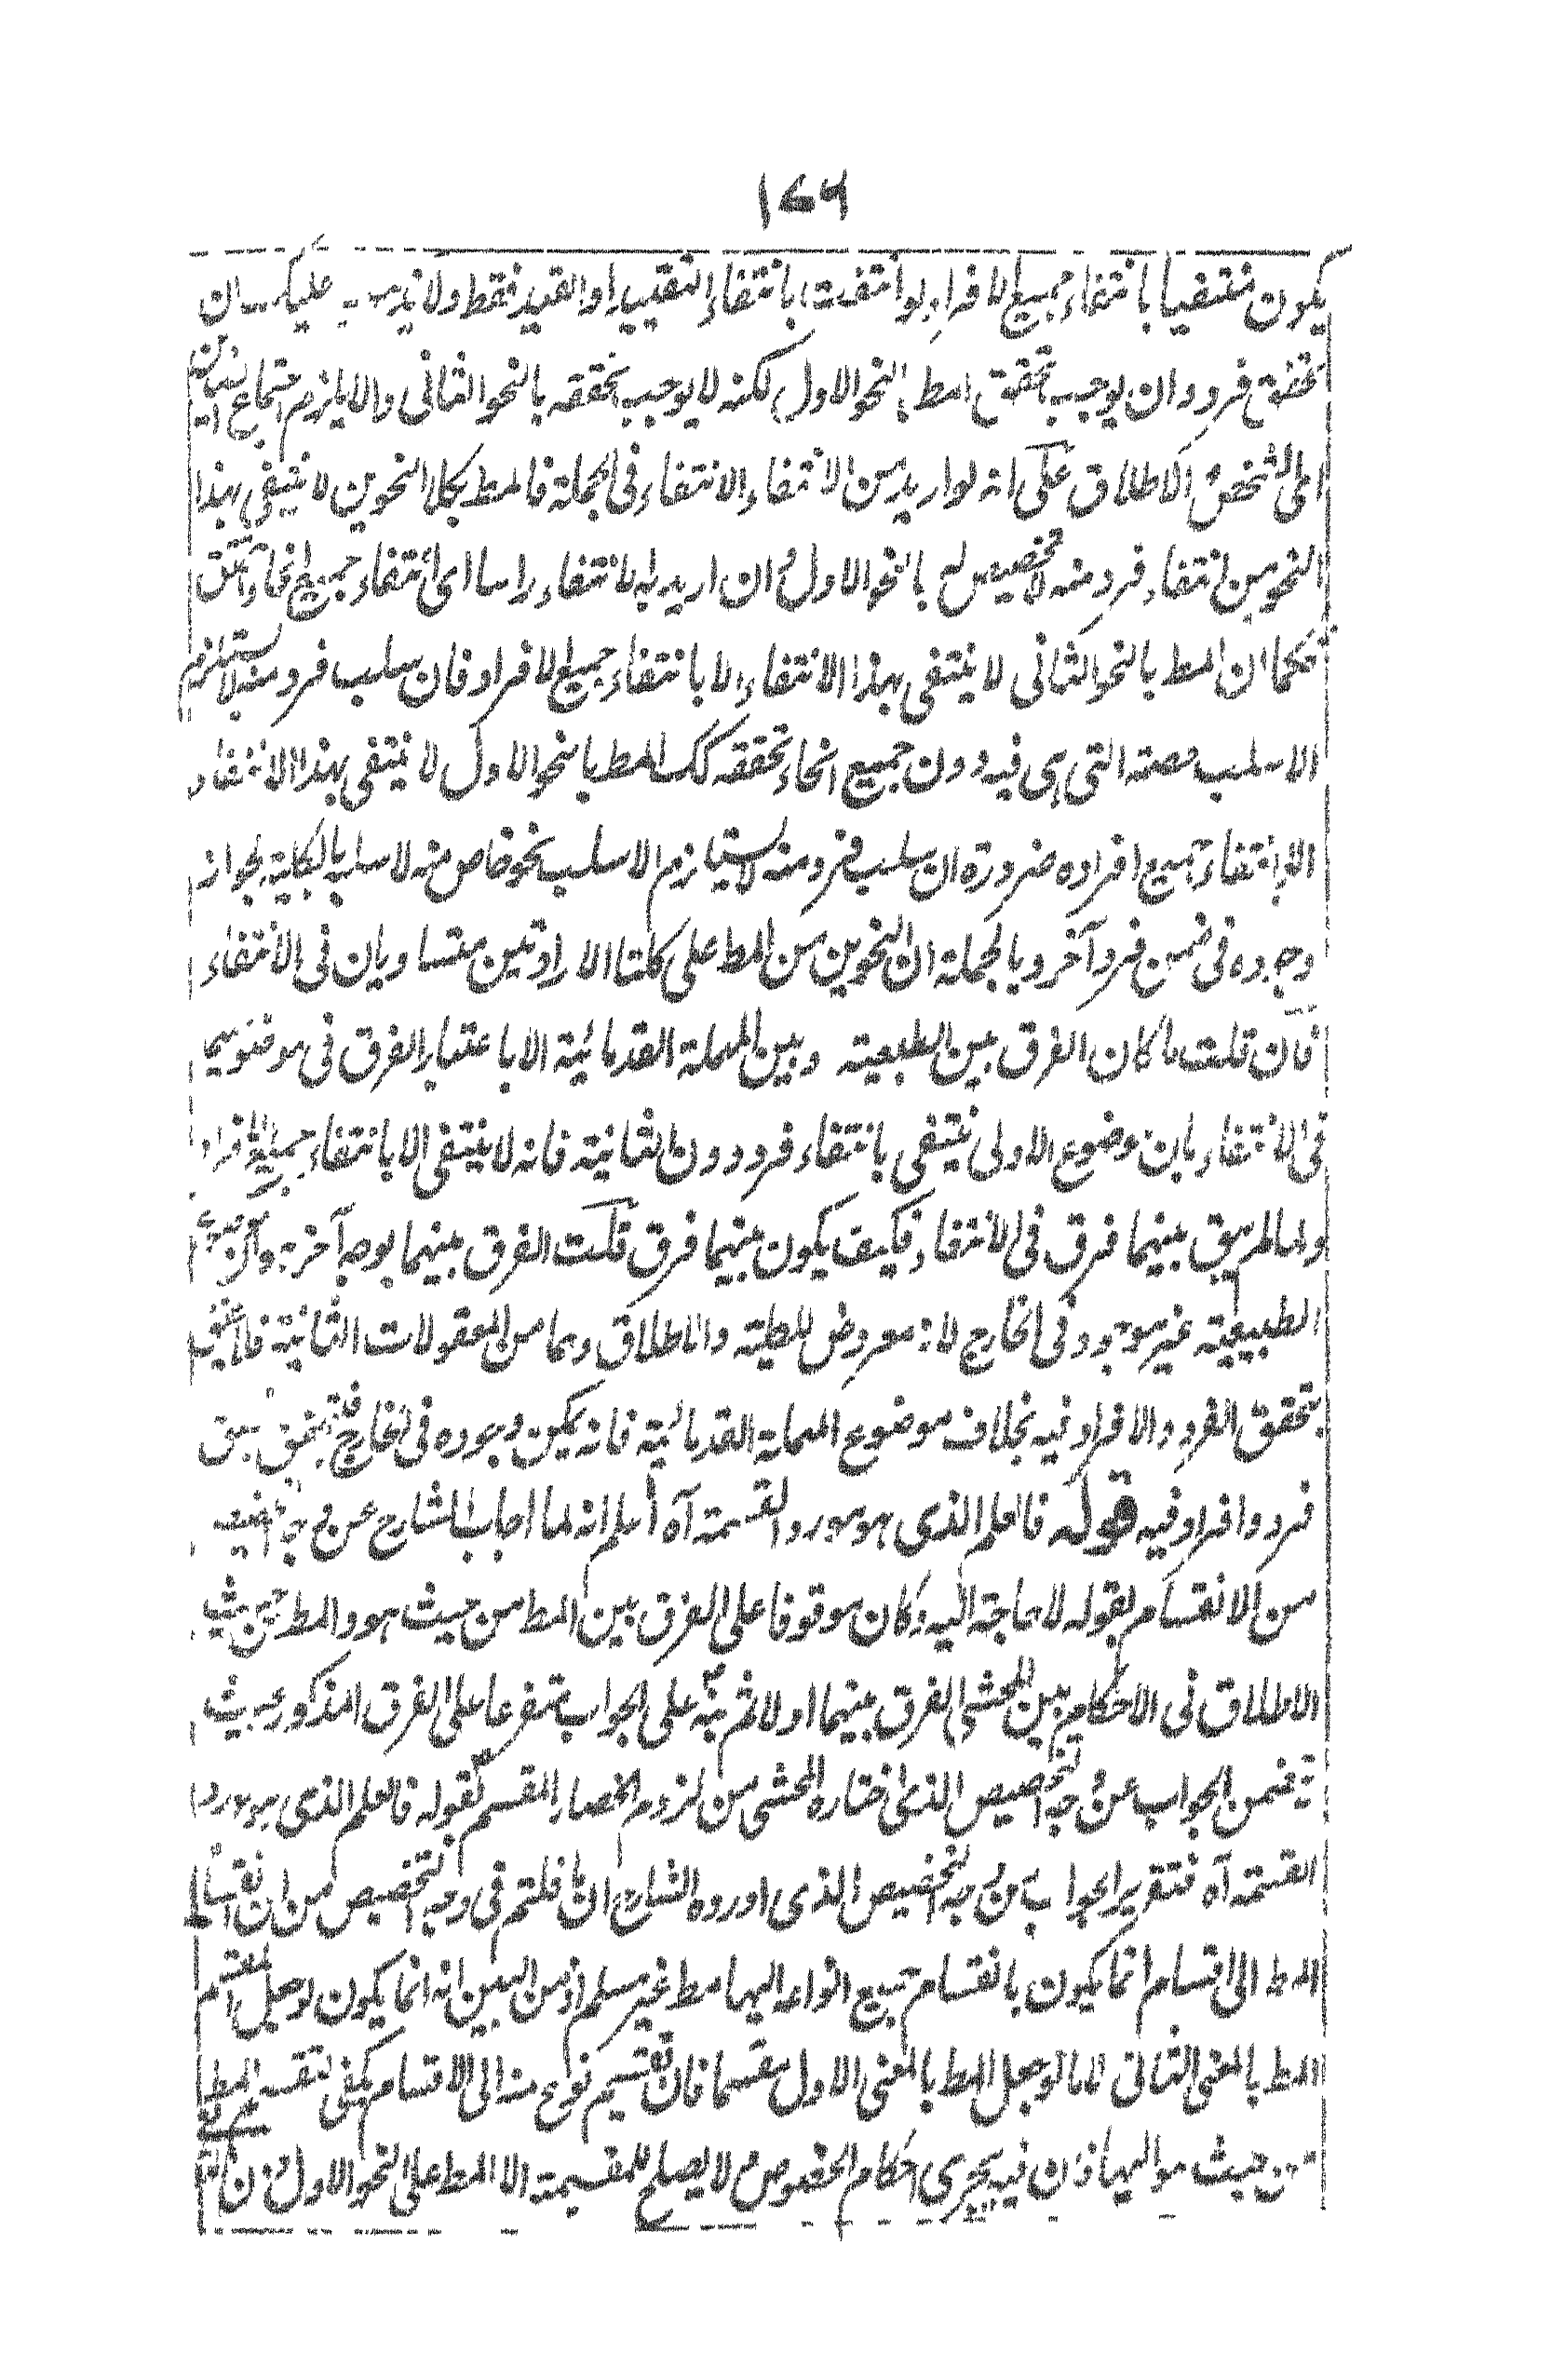 ۱۷۶
يكون منتفيا بانتفاء جميع الافراد او انتفت بانتفاء التقييد او القيد فقط ولا يذهب عليك ان
تحقق فرد وان يوجب تحقق المط بالنحو الاول لكنه لا يوجب تحققه بالنحو الثانى والا يلزم اجتماع
التشخص والاطلاق على انه لو اريد من الانتفاء الانتفاء فى الجملة فالمط بكلا النحوين لا ينتفى بهذا
النحو من انتفاء فرد منه لا تخصيص له بالنحو الاول وان اريد به الانتفاء راسا اى انتفاء جميع انحاء التحقق
فكما ان المط بالنحو الثانى لا ينتفى بهذا الانتفاء الا بانتفاء جميع الافراد فان سلب فرد منه لا يستلزم
الا سلب حصته التى هى فيه دون جميع انحاء تحققه كك المط بالنحو الاول لا ينتفى بهذا الانتفاء
الا بانتفاء جميع افراده ضرورة ان سلب فرد منه لا يستلزم الا سلب نحو خاص منه لا سلبه بالكلية لجواز
وجوده فى ضمن فرد آخر وبالجملة ان النحوين من المط على كلتا الارادتين متساويان فى الانتفاء
فان قلت ما كان الفرق بين الطبعية وبين المهملة القدمائية الا باعتبار الفرق فى موضوعيهما
فى الانتفاء بان موضوع الاولى ينتفى بانتفاء فرد دون الثانية فانه لا ينتفى الا بانتفاء جميع الافراد
ولما لم يبق بينهما فرق فى الانتفاء فكيف يكون بينهما فرق قلت الفرق بينهما بوجه آخر وهو ان موضوع
الطبيعية غير موجود فى الخارج لانه معروض للكلية والاطلاق وهما من المعقولات الثانية
بتحقق الفرد والافراد فيه بخلاف موضوع المهملة القدمائية فانه يمكن وجوده فى الخارج
فرد وافراد فيه قوله فالعلم الذى هو مورد القسمة آه اعلم انه لما اجاب الشارح عن وجه التخصيص
من الانقسام بقوله لا حاجة اليه وكان موقوفا على الفرق بين المط من حيث هو والمط من حيث
الاطلاق فى الاحكام بين المحشى الفرق بينهما اولا ثم نبه على الجواب متفرعا على الفرق المذكور بحيث
يتضمن الجواب عن وجه التخصيص الذى اختاره المحشى من لزوم انحصار المقسم بقوله فالعلم الذى هو مورد
القسمة آه فتقرير الجواب عن وجه التخصيص الذى اورده الشارح ان ما قلتم فى وجه التخصيص من ان انقسام
المط الى اقسام انما يكون بانقسام جميع انواعه اليها مط غير مسلم اذ من البين انه انما يكون لو جعل المقسم
المط بالمعنى الثانى اما لو جعل المط بالمعنى الاول مقسما فان تقسيم نوع منه الى الاقسام يكفى لتقسيم المط
من حيث هو اليها اذن فيه يجرى احكام الخصوص ولا يصلح للمقسمية الا المط على النحو الاول